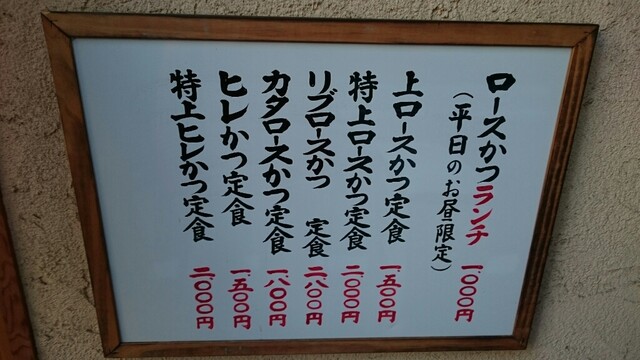 ロースかつランチ 一、〇〇〇円
（平日のお昼限定）
上ロースかつ定食 一、五〇〇円
特上ロースかつ定食 二、〇〇〇円
リブロースかつ 定食 二、八〇〇円
カタロースかつ定食 一、八〇〇円
ヒレかつ定食 一、五〇〇円
特上ヒレかつ定食 二、〇〇〇円